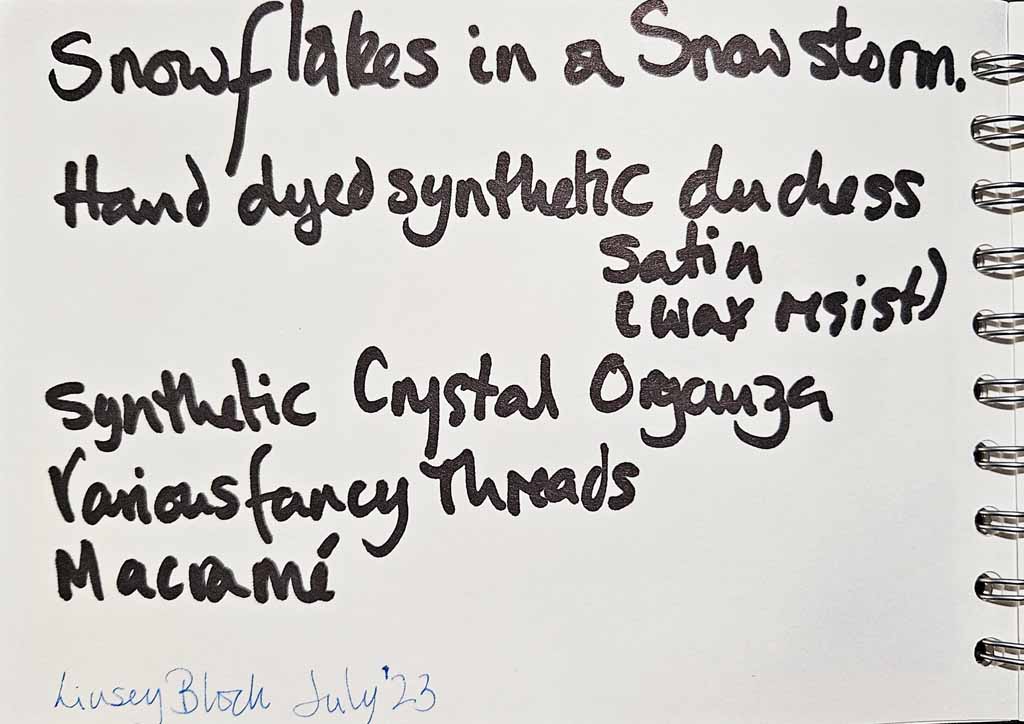 Snowflakes in a Snowstorm.
Hand dyed synthetic duchess
satin
(wax resist)
Synthetic Crystal Organza
Various fancy Threads
Macramé
Linsey Block July '23